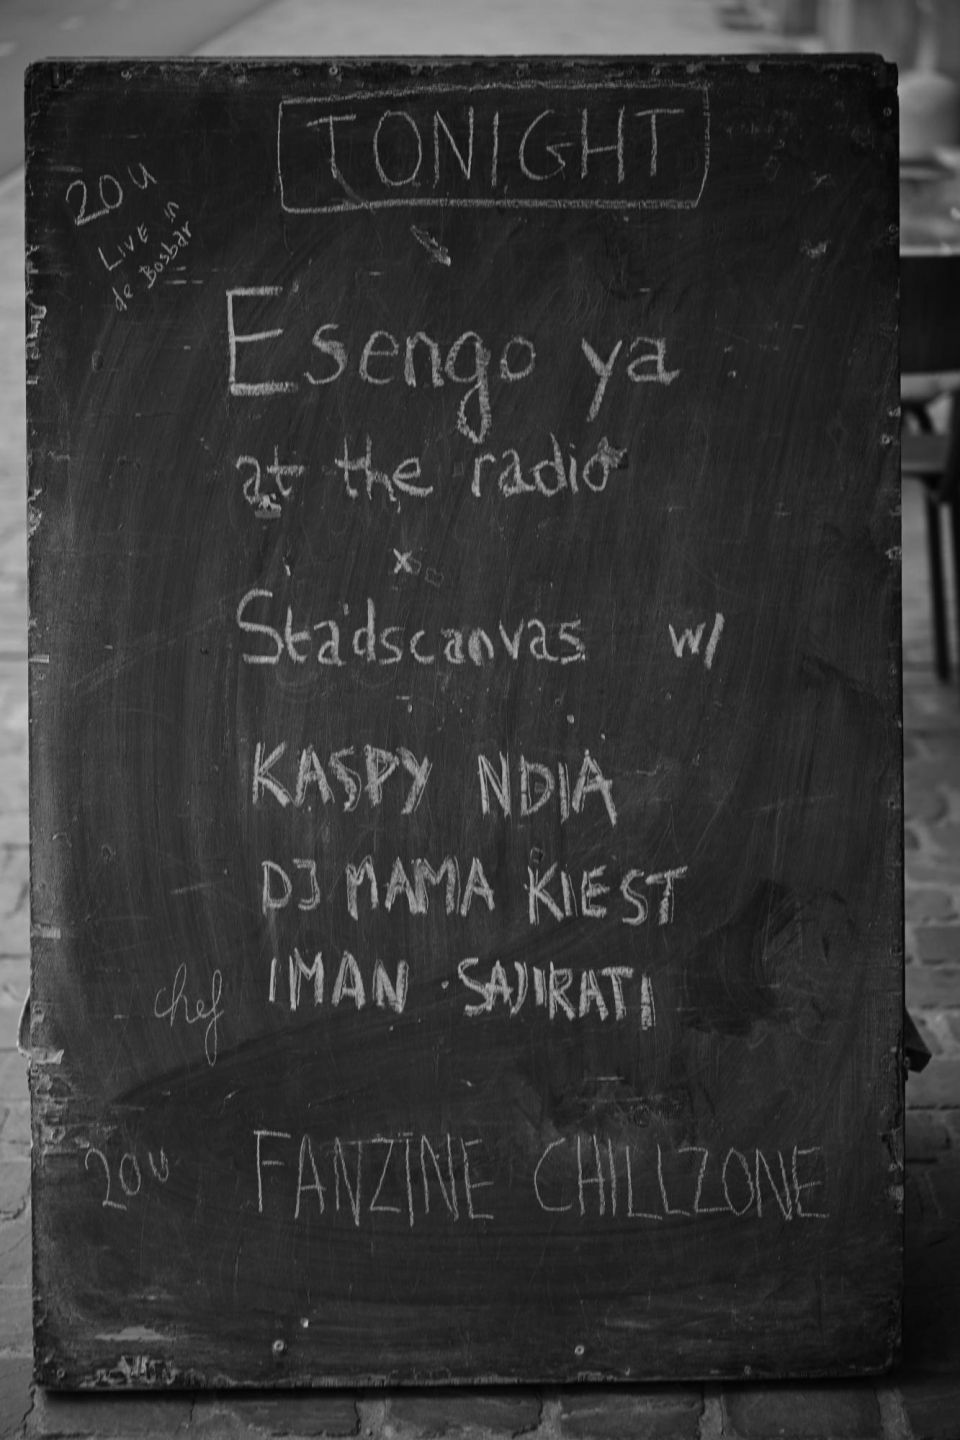 TONIGHT
20u
LIVE in
de Bosbar
Esengo ya
at the radio
x
Stadscanvas w/
KASPY NDIA
DJ MAMA KIEST
chef IMAN SAJIRATI
20u FANZINE CHILLZONE